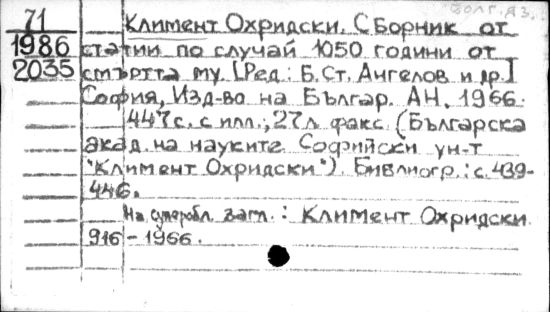 Болг. яз.
71
1986
2035
Климент Охридски. Сборник от
статии по случай 1050 години от
смъртта му. [Ред.: Б. Ст. Ангелов и др.]
София, Изд-во на Българ. АН, 1966.
447 с. с илл.; 27 л. факс. (Българска
акад. на науките. Софийски ун-т
"Климент Охридски"). Библиогр.: с. 439-
446.
На суперобл. загл.: Климент Охридски.
916 - 1966.